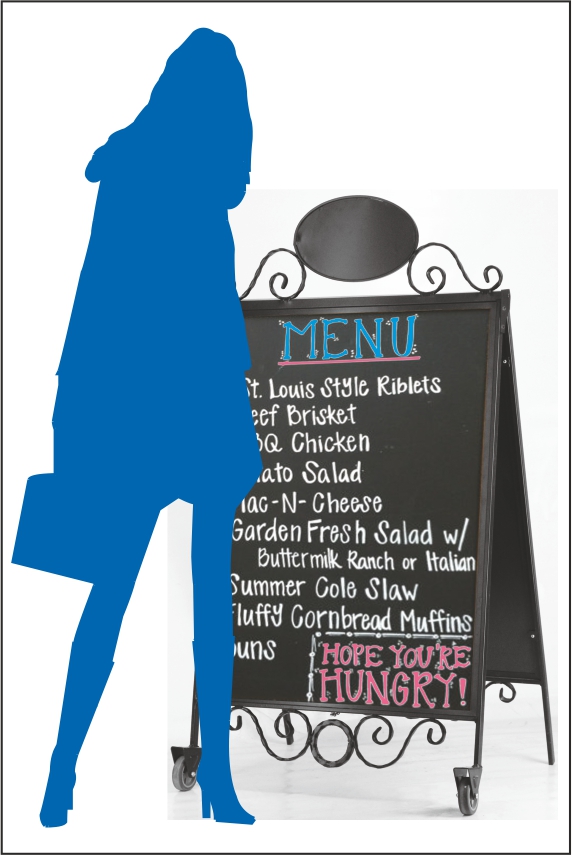 MENU
St. Louis Style Riblets
eef Brisket
BQ Chicken
ato Salad
ac-N-Cheese
Garden Fresh Salad w/
Buttermilk Ranch or Italian
Summer Cole Slaw
Fluffy Cornbread Muffins
uns
HOPE YOU'RE
HUNGRY!